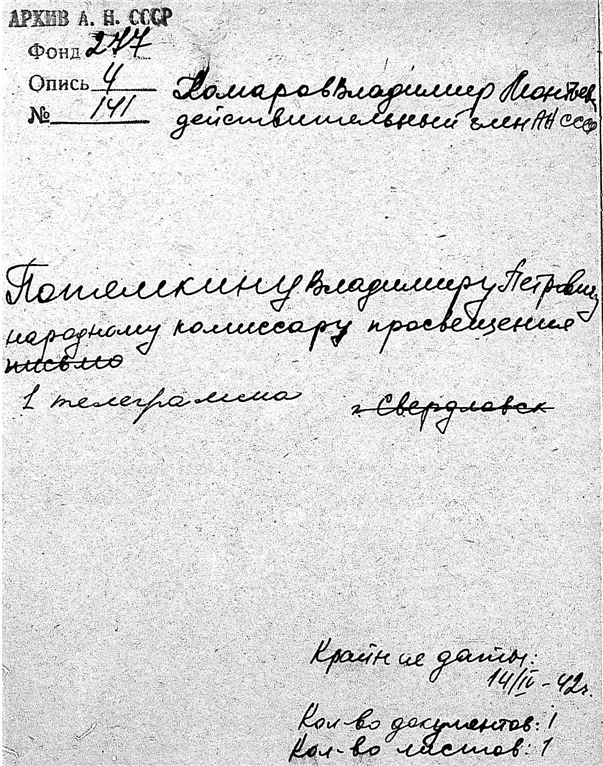 АРХИВ А. Н. СССР
Фонд 277
Опись 4
№ 141
Комаров Владимир Леонтьев
действительный член АН СССР
Потемкину Владимиру Петровичу
народному комиссару просвещения
письмо
1 телеграмма
г. Свердловск
Крайние даты:
14/IV-42г.
Кол-во документов: 1
Кол-во листов: 1